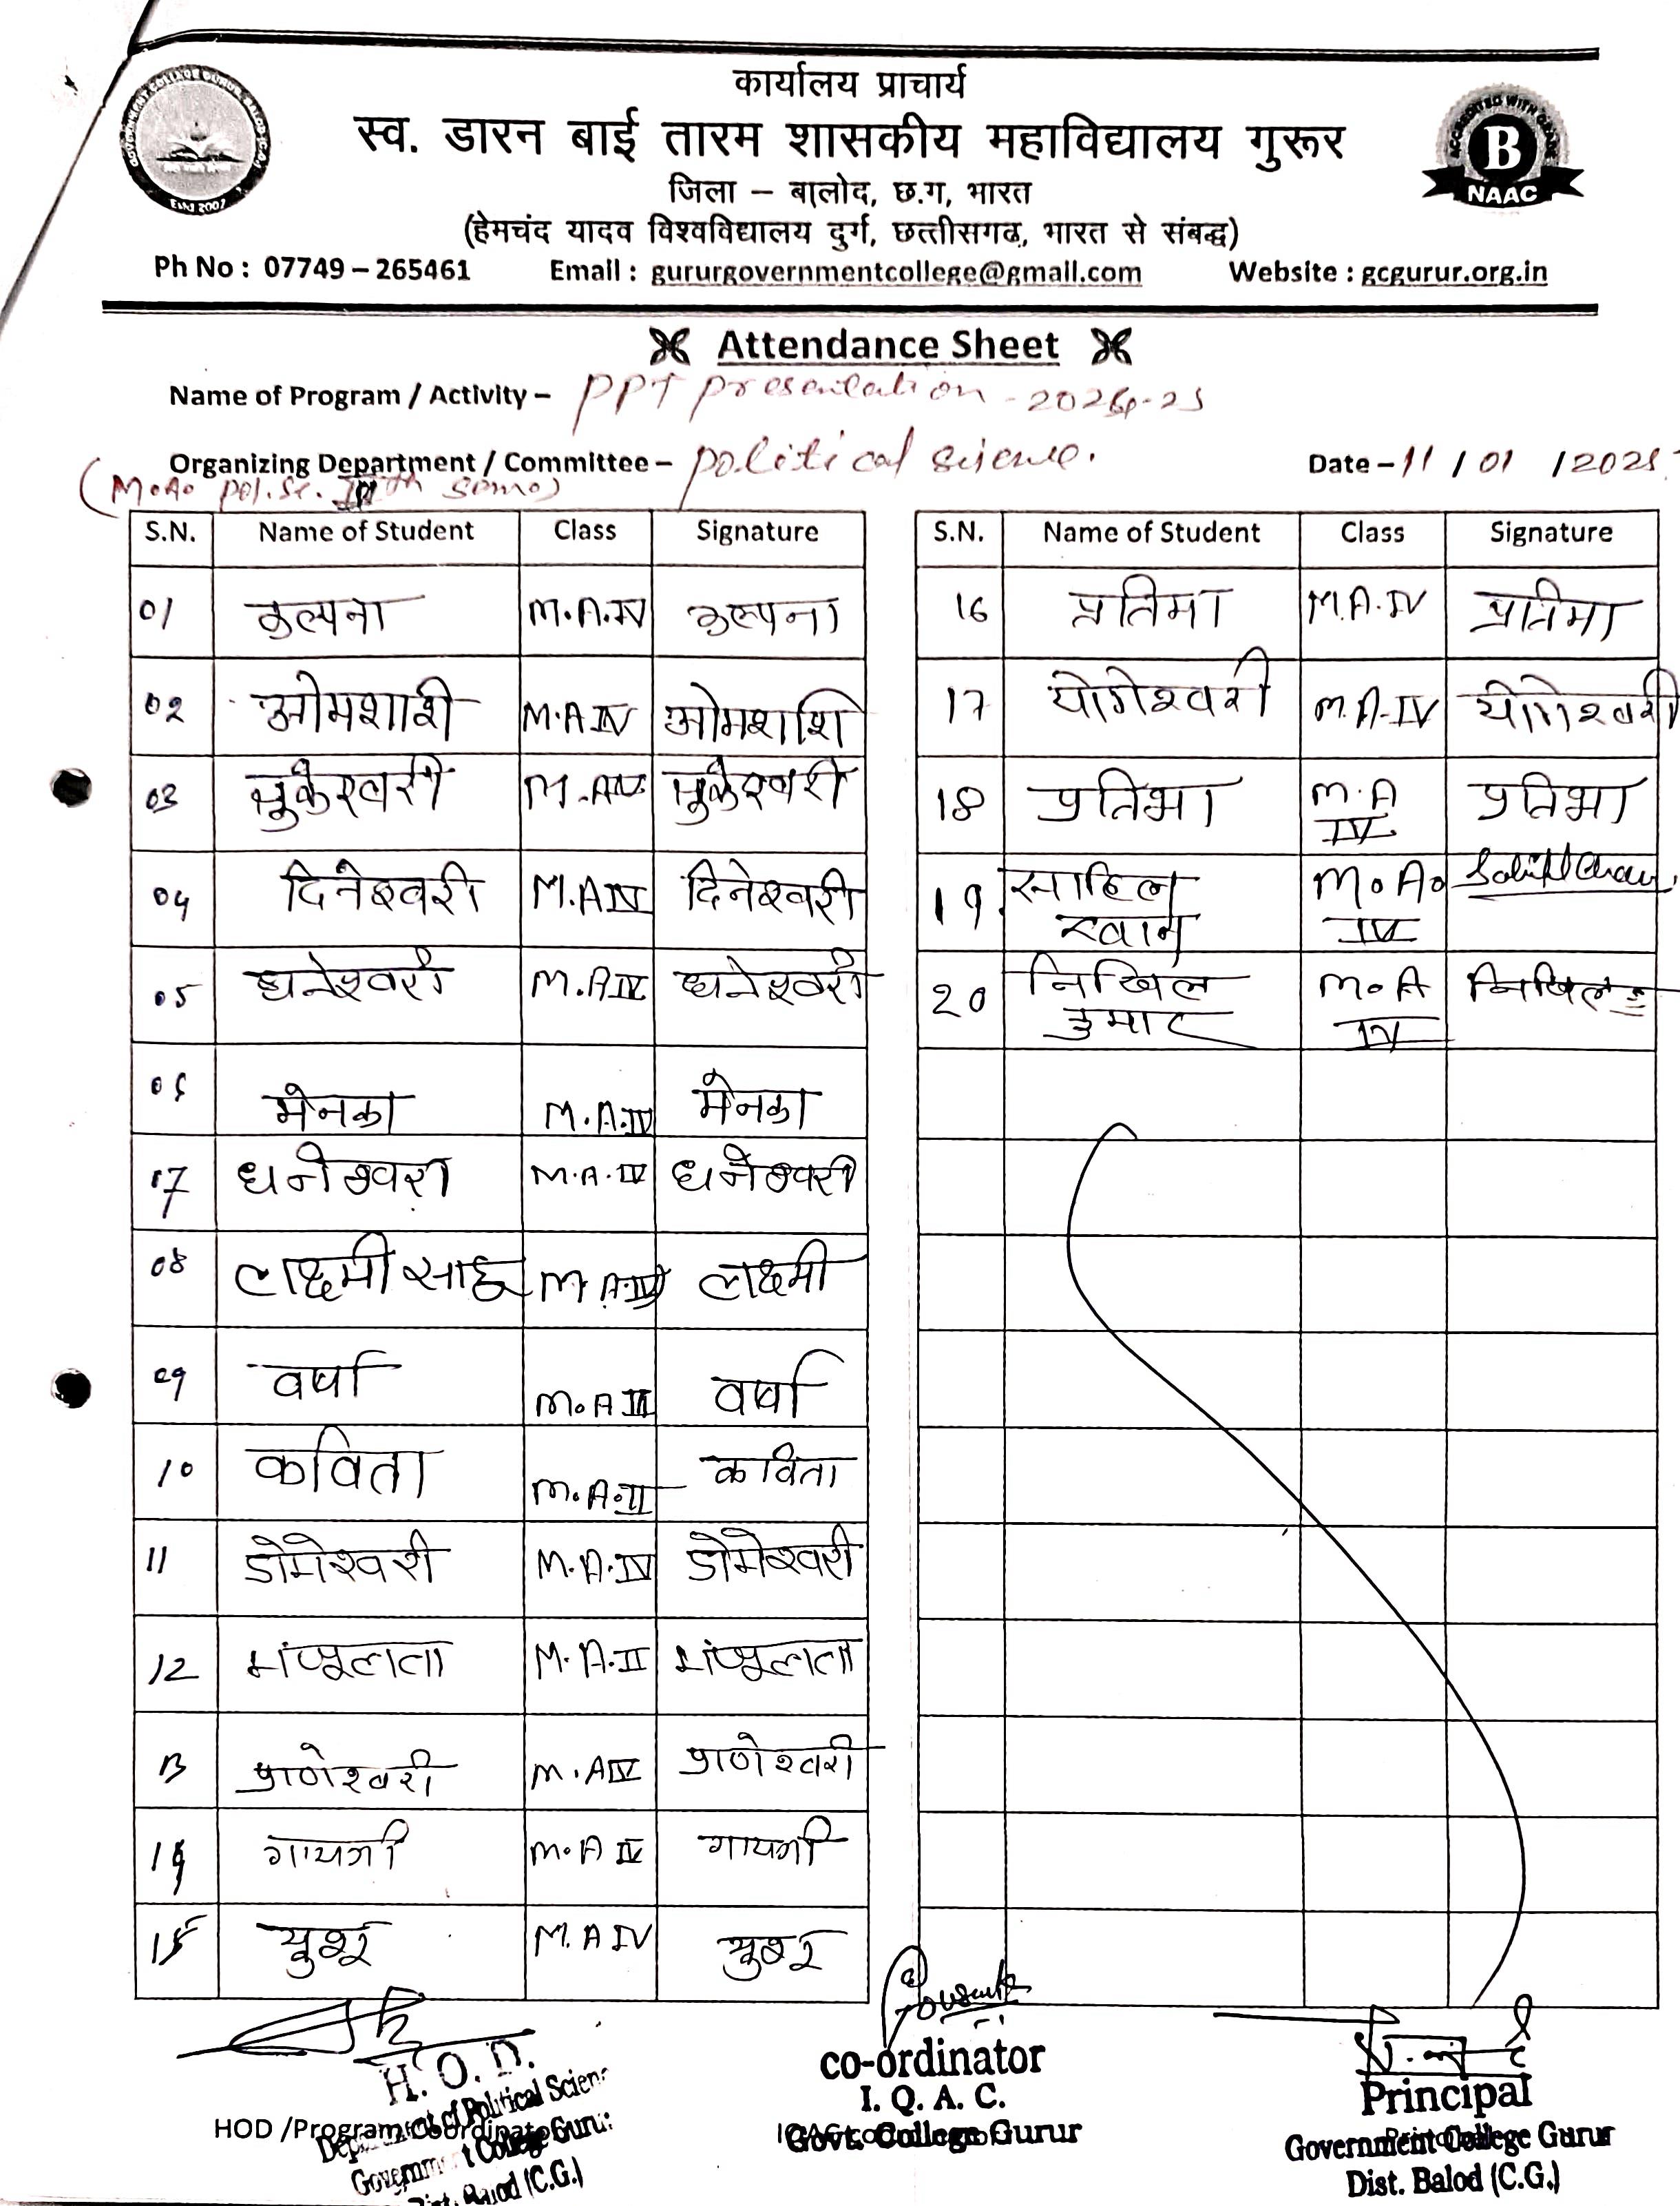 कार्यालय प्राचार्य
स्व. डारन बाई तारम शासकीय महाविद्यालय गुरूर
जिला – बालोद, छ.ग, भारत
(हेमचंद यादव विश्वविद्यालय दुर्ग, छत्तीसगढ, भारत से संबद्ध)
Ph No : 07749 – 265461 Email : gururgovernmentcollege@gmail.com Website : gcgurur.org.in
Estd 2007
B
NAAC
Attendance Sheet
Name of Program / Activity – PPT presentation
Organizing Department / Committee – political science. Date – 11 / 01 /2025
S.N. Name of Student Class Signature
01 कल्पना M.A.IV कल्पना
02 ओमशाशी M.A IV ओमशशि
03 भुकेश्वरी M.A IV भुकेश्वरी
04 दिनेश्वरी M.A IV दिनेश्वरी
05 धनेश्वरी M.A IV धनेश्वरी
06 मेनका M.A.IV मेनका
07 धनेश्वरी M.A.IV धनेश्वरी
08 लक्ष्मी साहू M.A.IV लक्ष्मी
09 वर्षा M.A III वर्षा
10 कविता M.A.II कविता
11 डोमेश्वरी M.A.IV डोमेश्वरी
12 मंजूलता M.A.II मंजूलता
13 प्राणेश्वरी M.A IV प्राणेश्वरी
14 गायत्री M.A IV गायत्री
15 M.A IV
S.N. Name of Student Class Signature
16 प्रतिमा M.A.IV प्रतिमा
17 योगेश्वरी M.A-IV योगेश्वरी
18 प्रतिभा M.A IV प्रतिभा
19. साहिल खान M.A. IV
20 निखिल कुमार M.A IV निखिल
H.O.D.
Department of Political Science
HOD /Program Coordinator
Government College Gurur
Dist. Balod (C.G.)
co-ordinator
I. Q. A. C.
Govt. College Gurur
Principal
Government College Gurur
Dist. Balod (C.G.)